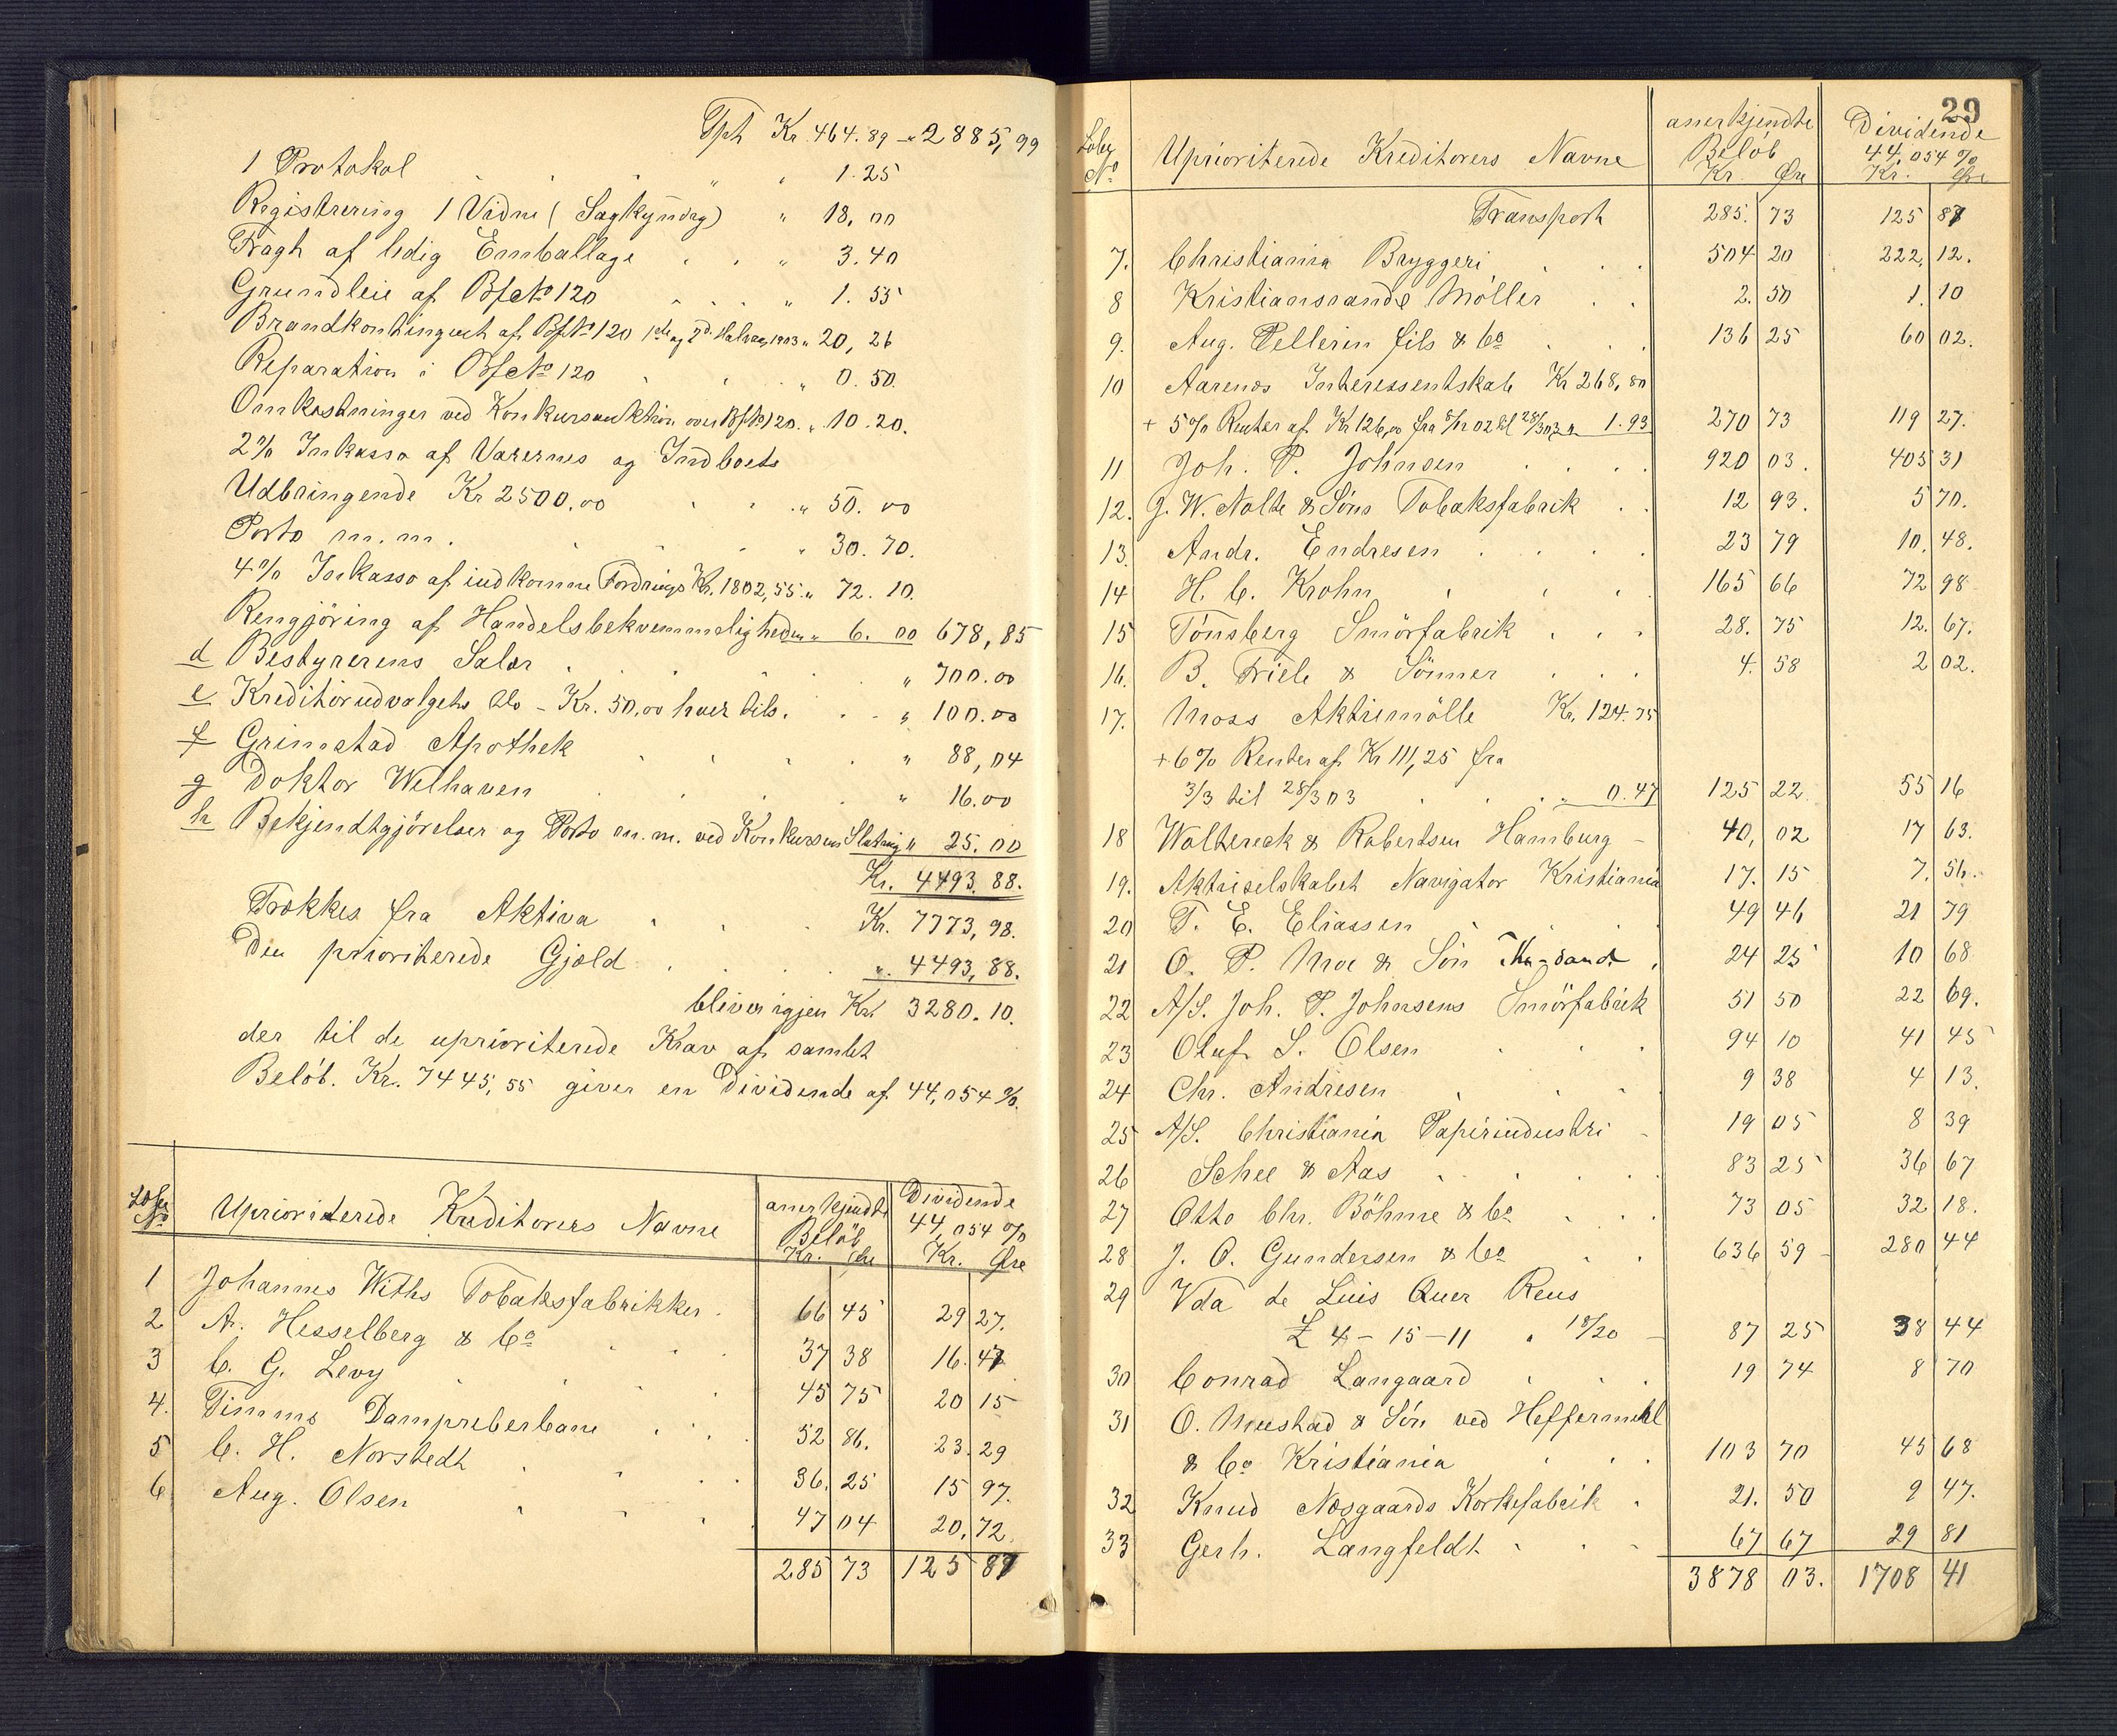 Tpt Kr. 464.89 - " 2885,99
1 Protokol . . . " " 1.25
Registrering 1 Vidne (Sagkyndig) " 18,00
Fragt af ledig Emballage . . " 3.40
Grundleie af Bf. No 120 . . . " 1.55
Brandkontingent af Bf. No 120 1ste og 2d. Halvaar 1903 " 20,26
Reparation i Bf. No 120 . . . " 0.50.
Omkostninger ved Konkursauktion over Bf. No 120. " 10.20.
2% Inkasso af Varernes og Indboets
Udbringende Kr 2500,00 . . . " 50.00
Porto m.m. . . . . " 30.70.
4% Inkasso af indkomne Fordrings Kr. 1802,55. " 72.10.
Rengjöring af Handelsbekvemmeligheden " 6.00 678,85
d Bestyrerens Salær . . . . " 700.00
e Kreditorudvalgets do - Kr. 50,00 hver tils. . . " 100.00
f Grimstad Apothek . . . . " 88,04
g Doktor Welhaven . . . . " 16.00
h Bekjendtgjörelser og Porto m.m. ved Konkursens Slutning " 25.00
Kr. 4493.88.
Trækkes fra Aktiva . . . Kr. 7773,98.
Den prioriterede Gjæld . . . . ". 4493,88.
bliver igjen Kr. 3280.10.
der til de uprioriterede Krav af samlet
Belöb. Kr. 7445,55 giver en Dividende af 44,054%.
Löbe No Uprioriterede Kreditorers Navne anerkjendte Belöb Kr. Øre Dividende 44,054% Kr. Øre
1 Johannes Withs Tobaksfabrikker . 66 45 29 27.
2 A. Hesselberg & Co . . . 37 38 16.47
3 C. G. Levy . . . 45 75 20 15
4. Timms Dampreberbane . . . 52 86. 23.29
5 C. H. Norstedt . . . 36,25 15 97.
6 Aug. Olsen . . . 47 04 20,72.
285 73 125 87
29
Löbe No Uprioriterede Kreditorers Navne anerkjendte Belöb Kr. Øre Dividende 44,054% Kr. Øre
Transport 285. 73 125 87
7. Christiania Bryggeri . . . 504 20 222,12.
8 Kristianssands Möller . . 2.50 1.10
9. Aug. Pellerin fils & Co . . . 136 25 60 02.
10 Aarenes Interessentskab Kr 268,80
+ 5% Renter af Kr 126,00 fra 8/12 02 til 28/3 03 " 1.93 270 73 119 27.
11 Joh. P. Johnsen . . . . 920 03. 405 31
12. J. W. Nolte & Söns Tobaksfabrik . . 12 93. 5 70.
13. Andr. Endresen . . . . 23 79 10,48.
14 H. C. Krohn . . . 165 66 72 98
15 Tönsberg Smörfabrik . . . 28.75 12.67.
16. B. Friele & Sönner . . . 4.58 2 02.
17. Moss Aktiemölle Kr. 124.75
+ 6% Renter af Kr 111,25 fra
3/3 til 28/3 03 . . . " 0.47 125 22 55 16
18 Woltereck & Robertsen Hamburg - 40,02 17 63.
19. Aktieselskabet Navigator Kristiania 17.15 7.56.
20 T. E. Eliassen . . . 49 46 21 79
21 O. P. Moe & Sön Kr-sand . 24 25 10 68
22 A/S. Joh. P. Johnsens Smörfabrik 51 50 22 69.
23 Oluf S. Olsen . . . 94 10 41 45
24 Chr. Andresen . . . 9 38 4 13.
25 A/S. Christiania Papirindustri - 19 05 8 39
26 Schee & Aas . . . . 83 25 36 67
27 Otto Chr. Böhme & Co . . . 73 05 32 18.
28 J. O. Gundersen & Co . . 636 59 280 44
29 Vda de Luis Quer Reus
£ 4 - 15 - 11 . 18/20 - 87 25 38 44
30 Conrad Langaard . . . 19 74 8 70
31 O. Mustad & Sön ved Heffermehl
& Co Kristiania . . . 103 70 45 68
32 Knud Nøsgaards Korkefabrik . 21.50 9 47.
33 Gerh. Langfeldt . . . 67 67 29 81
3878 03. 1708 41